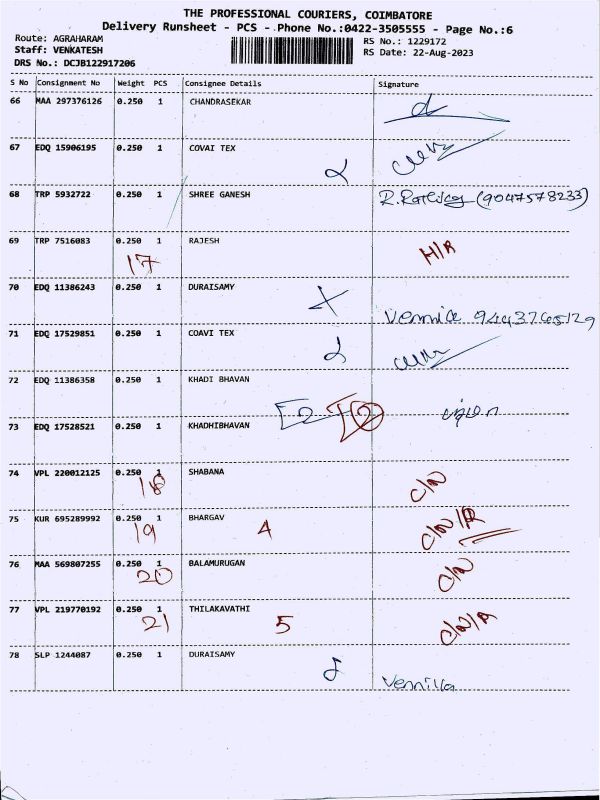 THE PROFESSIONAL COURIERS, COIMBATORE
Delivery Runsheet - PCS - Phone No.:0422-3505555 - Page No.:6
Route: AGRAHARAM
Staff: VENKATESH
DRS No.: DCJB122917206
RS No.: 1229172
RS Date: 22-Aug-2023
S No Consignment No Weight PCS Consignee Details Signature
66 MAA 297376126 0.250 1 CHANDRASEKAR
67 EDQ 15906195 0.250 1 COVAI TEX
68 TRP 5932722 0.250 1 SHREE GANESH (9047578233)
69 TRP 7516083 0.250 1 RAJESH
17
70 EDQ 11386243 0.250 1 DURAISAMY
71 EDQ 17529851 0.250 1 COAVI TEX
72 EDQ 11386358 0.250 1 KHADI BHAVAN
73 EDQ 17528521 0.250 1 KHADHIBHAVAN
74 VPL 220012125 0.250 1 SHABANA C/N
18
75 KUR 695289992 0.250 1 BHARGAV
19 4
76 MAA 569807255 0.250 1 BALAMURUGAN C/N
20
77 VPL 219770192 0.250 1 THILAKAVATHI
21 5
78 SLP 1244087 0.250 1 DURAISAMY
Vennilla